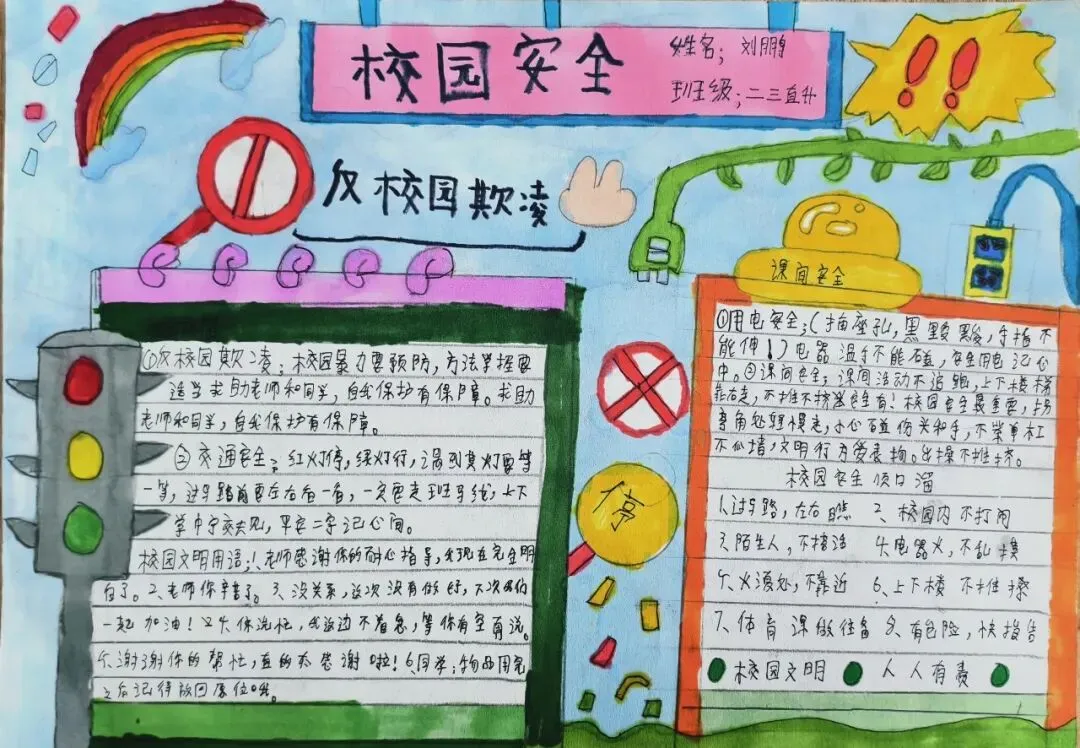 校园安全
姓名；刘鹏
班级；二三直升
反校园欺凌
课间安全
停
①反校园欺凌；校园暴力要预防，方法掌握要
适当求助老师和同学，自我保护有保障。求助
老师和同学，自我保护有保障。
②交通安全；红灯停，绿灯行，遇到黄灯要等
一等，过马路前要左右看一看，一定要走斑马线，上下
学中守交规，平安二字记心间。
校园文明用语；1、老师感谢你的耐心指导，我现在完全明
白了。2、老师你辛苦了。3、没关系，这次没有做好，下次我们
一起加油！4、你先忙，我这边不着急，等你有空再说。
5、谢谢你的帮忙，真的太感谢啦！6、同学；物品用完
之后记得放回原位哦。
①用电安全；（插座孔，黑黢黢，手指不
能伸！）电器湿手不能碰，安全用电记心
中。②课间安全；课间活动不追跑，上下楼梯
靠右走，不推不挤 安全有！校园安全最重要，拐
弯角处要慢走，小心碰伤头和手，不攀单杠
不爬墙，文明行为爱 操不推挤。
校园安全顺口溜
1、过马路，左右瞧 2、校园内不打闹
3、陌生人，不搭话 4、电器火，不乱摸
5、火源处，不靠近 6、上下楼 不推搡
7、体育课做准备 8、有危险，快报告
校园文明 人人有责